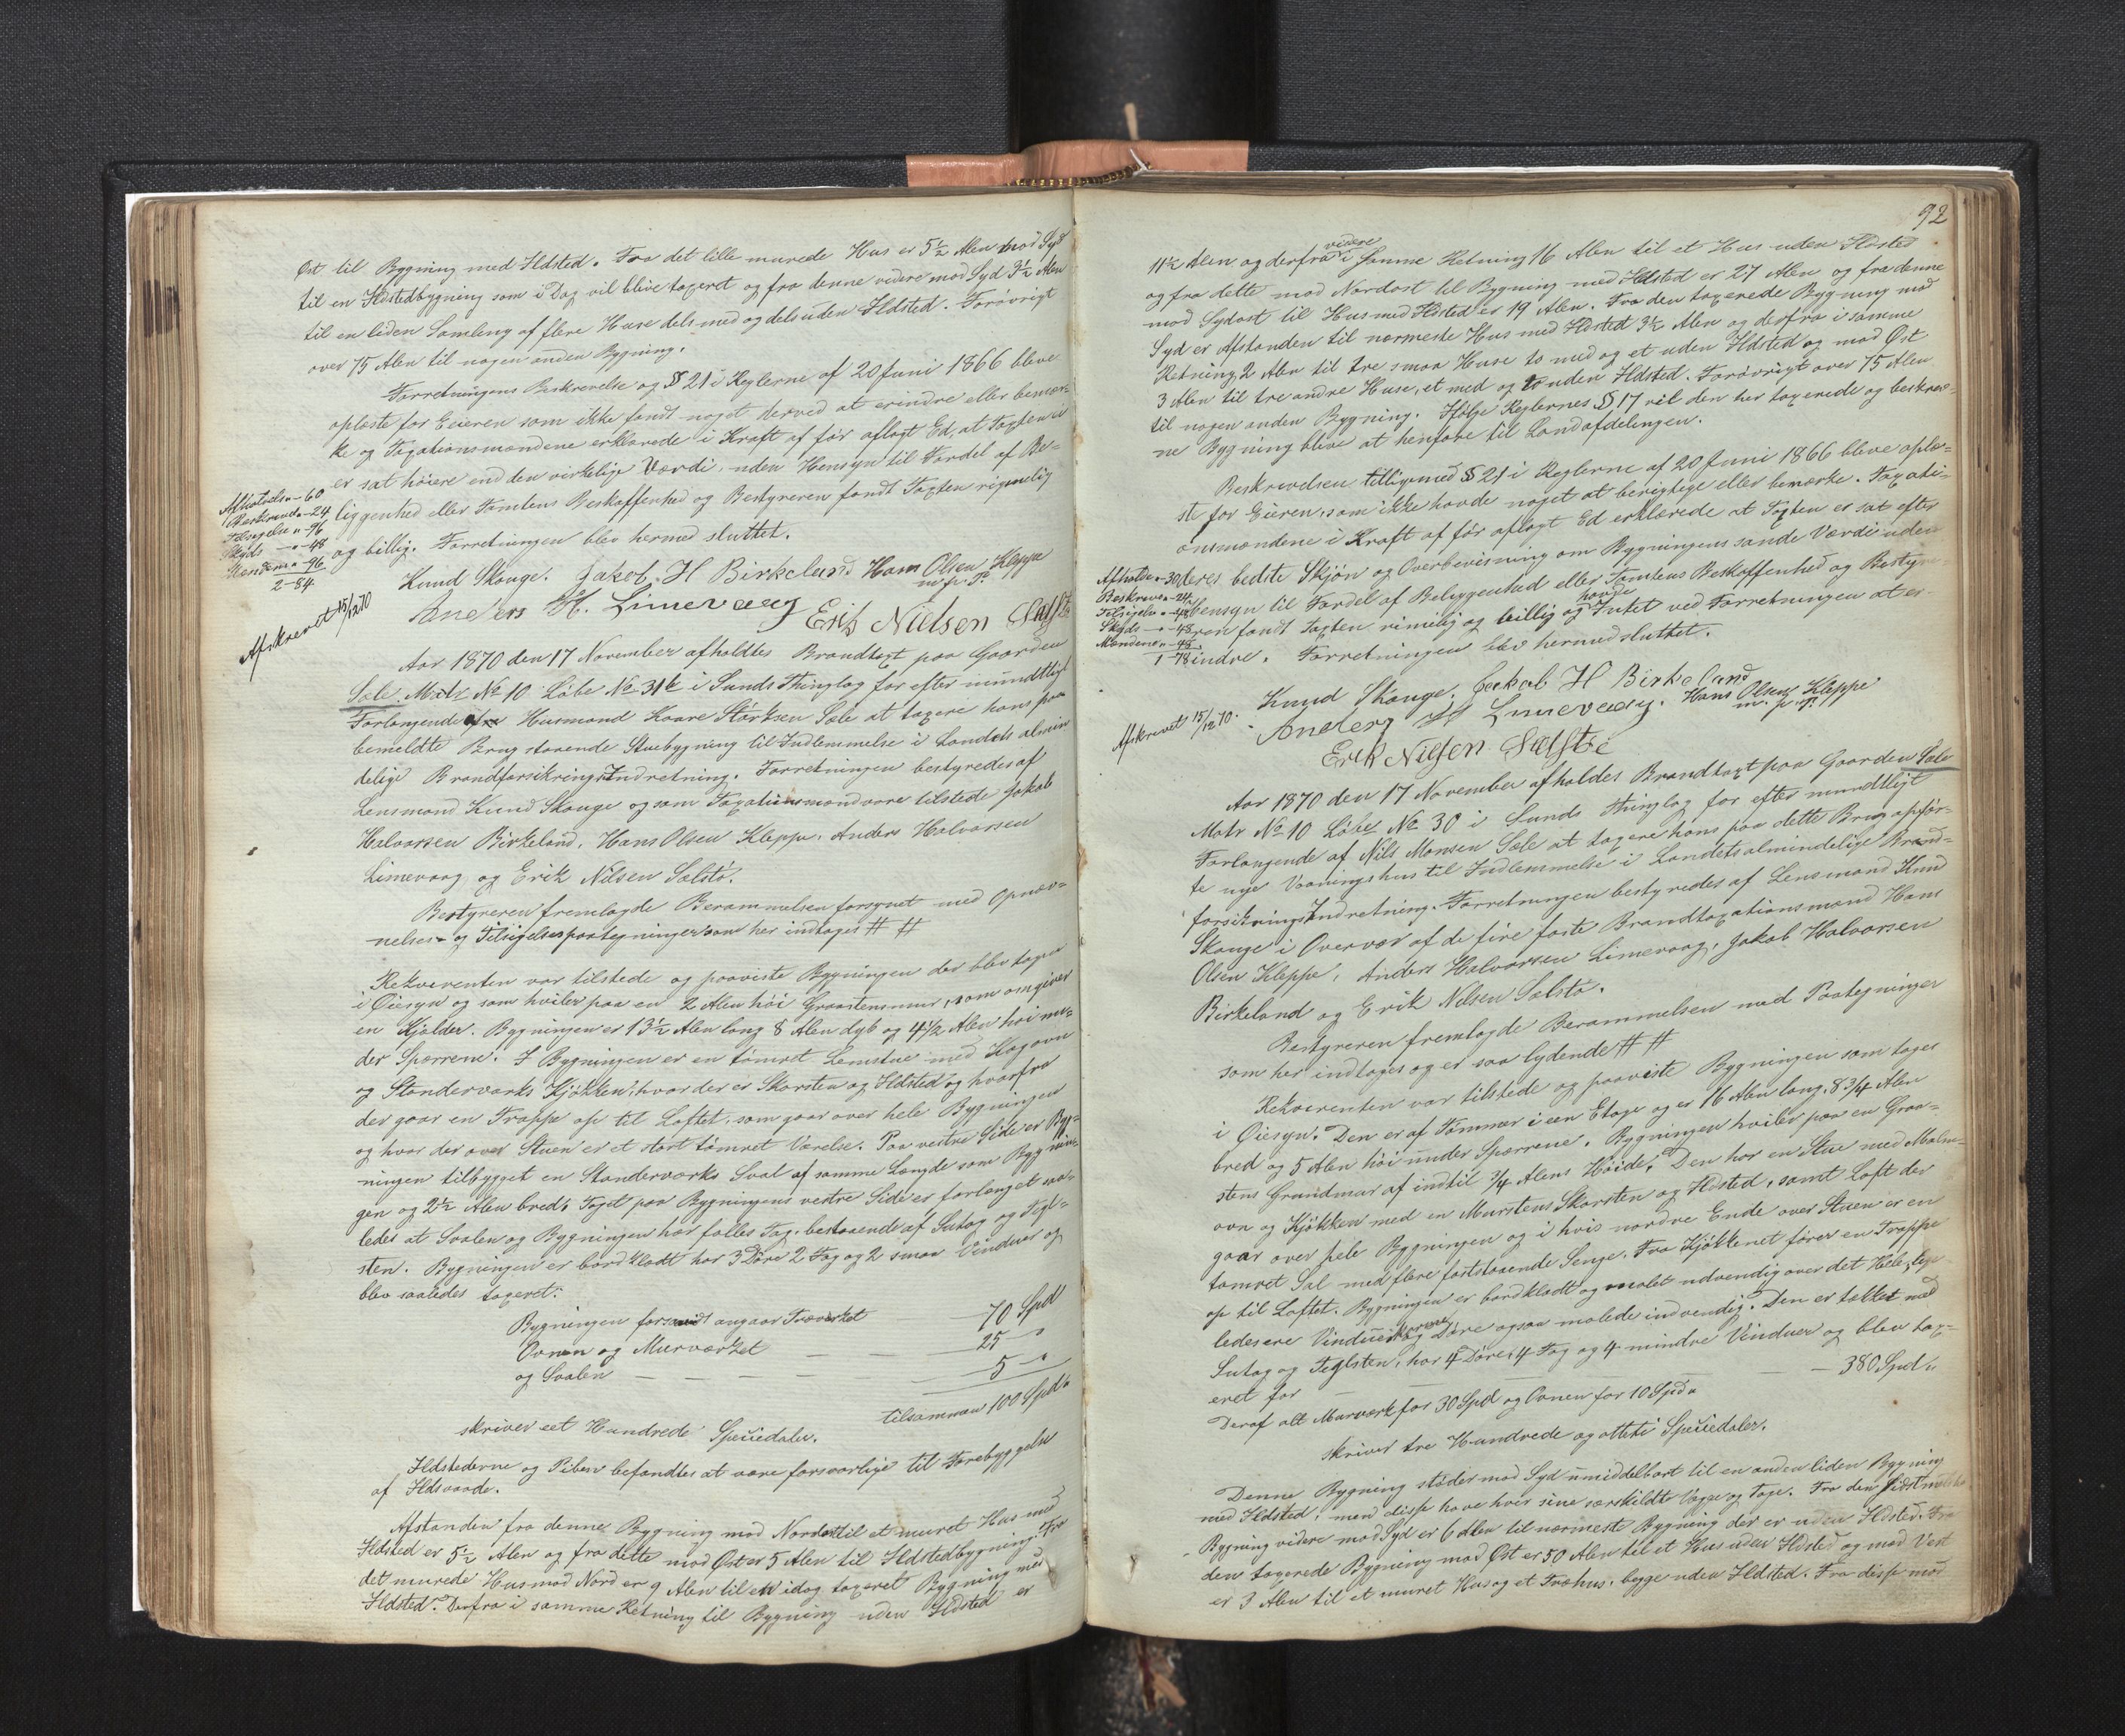 Øst til Bygning med Ildsted. Fra det lille murede Hus er 5½ Alen mod Syd
til en Ildstedbygning som i Dag vil blive taxeret og fra denne videre mod Syd 3½ Alen
til en liden Samling af flere Huse dels med og dels uden Ildsted. Forøvrigt
over 75 Alen til nogen anden Bygning.
Forretningens Beskrivelse og § 21 i Reglerne af 20 Juni 1866 bleve
oplæste for Eieren som ikke fandt noget derved at erindre eller bemær-
ke og Taxationsmændene erklærede i Kraft af før aflagt Ed, at Taxten ei
er sat høiere end den virkelige Værdi, uden Hensyn til Fordel af Be-
liggenhed eller Tomtens Beskaffenhed og Bestyreren fandt Taxten rimelig
og billig. Forretningen blev hermed sluttet.
Afholdelse - 60
Beskrivel - 24
Tilsigelse " - 96
Skyds — " - 48
Mændene - 96
2 - 84
Knud Skauge. Jakob. H Birkeland Hans Olsen Kleppe
m. p. P.
Anders H. Limevaag Erik Nielsen Sælstø
Afskrevet 15/12 70
Aar 1870 den 17 November afholdtes Brandtaxt paa Gaarden
Sæle Matr No 10 Løbe No 31b i Sunds Thinglag for efter mundtligt
Forlangende fra Husmand Kaare Størksen Sæle at taxere hans paa
bemeldte Brug staaende Stuebygning til Indlemmelse i Landets almin
delige BrandforsikringsIndretning. Forretningen bestyredes af
Lensmand Knud Skauge og som Taxationsmænd vare tilstede Jakob
Halvorsen Birkeland, Hans Olsen Kleppe, Anders Halvorsen
Limevaag og Erik Nilsen Sælstø.
Bestyreren fremlagde Berammelsen forsynet med Opnæv-
nelses- og Tilsigelsespaategninger som her indtages # #
Rekvirenten var tilstede og paaviste Bygningen der blev tagen
i Øiesyn og som hviler paa en 2 Alen høi Graastensmur, som omgiver
en Kjelder. Bygningen er 13½ Alen lang 8 Alen dyb og 4½ Alen høi un-
der Spærrene. I Bygningen er en tømret Lemstue med Kagovn
og Standerværks Kjøkken, hvor der er Skorsten og Ildsted og hvorfra
der gaar en Trappe op til Loftet, som gaar over hele Bygningen
og hvor der over Stuen er et stort tømret Værelse. Paa vestre Side er Byg-
ningen tilbygget en Standerværks Sval af samme Længde som Bygnin-
gen og 2½ Alen bred. Taget paa Bygningens vestre Side er forlænget saa-
ledes at Svalen og Bygningen har fælles Tag, bestaaende af Sutag og Tegl-
sten. Bygningen er bordklædt har 3 Døre 2 Fag og 2 smaa Vinduer og
blev saaledes taxeret:
Bygningen forsaavidt angaar Træværket 70 Spd
Ovnen og Murværket — — 25 — "
og Svalen — — — — 5 — "
tilsammen 100 Spd "
skriver eet Hundrede Speciedaler.
Ildstederne og Piben befandtes at være forsvarlige til Forebyggelse
af Ildsvaade.
Afstanden fra denne Bygning mod Nordost til et muret Hus med
Ildsted er 5½ Alen og fra dette mod Øst er 5 Alen til Ildstedbygning. Fra
det murede Hus mod Nord er 9 Alen til en idag taxeret Bygning med
Ildsted. Derfra i samme Retning til Bygning uden Ildsted er
92
11½ Alen og derfra videre i samme Retning 16 Alen til et Hus uden Ildsted
og fra dette mod Nordost til Bygning med Ildsted er 27 Alen og fra denne
mod Sydost til Hus med Ildsted er 19 Alen. Fra den taxerede Bygning mod
Syd er Afstanden til nærmeste Hus med Ildsted 3½ Alen og derfra i samme
Retning 2 Alen til tre smaa Huse to med og et uden Ildsted og mod Øst
3 Alen til tre andre Huse, et med og to uden Ildsted. Forøvrigt over 75 Alen
til nogen anden Bygning. Ifølge Reglernes § 17 vil den her taxerede og beskrev-
ne Bygning blive at henføre til Landafdelingen.
Beskrivelsen tilligemed § 21 i Reglerne af 20 Juni 1866 bleve oplæ-
ste for Eieren, som ikke havde noget at berigtige eller bemærke. Taxati-
onsmændene i Kraft af før aflagt Ed erklærede at Taxten er sat efter
deres bedste Skjøn og Overbevisning om Bygningens sande Værdi uden
Hensyn til Fordel af Beliggenhed eller Tomtens Beskaffenhed og Bestyre-
ren fandt Taxten rimelig og billig og havde Intet ved Forretningen at er-
indre. Forretningen blev hermed sluttet.
Afholde. - 30
Beskrivel - 24
Tilsigels " - 48
Skyds — " - 48
Mændene " - 48
1 - 78
Knud Skauge. Jakob H Birkeland
Anders H Limevaag. Hans Olsen Kleppe
m. p. P.
Erik Nilsen Sælstø
Afskrevet 15/12 70.
Aar 1870 den 17 November afholdes Brandtaxt paa Gaarden Sæle
Matr No 10 Løbe No 30 i Sunds Thinglag for efter mundtligt
Forlangende af Nils Monsen Sæle at taxere hans paa dette Brug opfør-
te nye Vaaningshus til Indlemmelse i Landets almindelige Brand-
forsikringsIndretning. Forretningen bestyredes af Lensmand Knud
Skauge i Overvær af de fire faste Brandtaxationsmænd Hans
Olsen Kleppe, Anders Halvorsen Limevaag, Jakob Halvorsen
Birkeland og Erik Nilsen Sælstø.
Bestyreren fremlagde Berammelsen med Paategninger
som her indtages og er saa lydende # #
Rekvirenten var tilstede og paaviste Bygningen som toges
i Øiesyn. Den er af Tømmer i een Etage og er 16 Alen lang, 8 3/4 Alen
bred og 5 Alen høi under Spærrene. Bygningen hviler paa en Graa-
stens Grundmur af indtil 3/4 Alens Høide. Den har en Stue med Malm-
ovn og Kjøkken med en Murstens Skorsten og Ildsted, samt Loft der
gaar over hele Bygningen og i hvis nordre Ende over Stuen er en
tømret Sal med flere faststaaende Senge. Fra Kjøkkenet fører en Trappe
op til Loftet. Bygningen er bordklædt og malet udvendig over det Hele,
ledes ere Vinduer og Døre ogsaa malede indvendig. Den er tækket med
Sutag og Teglsten, har 4 Døre, 4 Fag og 4 mindre Vinduer og blev tax-
eret for — — — 380 Spd "
Deraf alt Murværk for 30 Spd og Ovnen for 10 Spd "
skriver tre Hundrede og otteti Speciedaler.
Denne Bygning støder mod Syd umiddelbart til en anden liden Bygning
med Ildsted, men disse have hver sine særskildte Vægge og Tage. Fra den sidstnævnte
Bygning videre mod Syd er 6 Alen til nærmeste Bygning der er uden Ildsted. Fra
den taxerede Bygning mod Øst er 50 Alen til et Hus uden Ildsted og mod Vest
er 3 Alen til et muret Hus og et Træhus, begge uden Ildsted. Fra disse mod